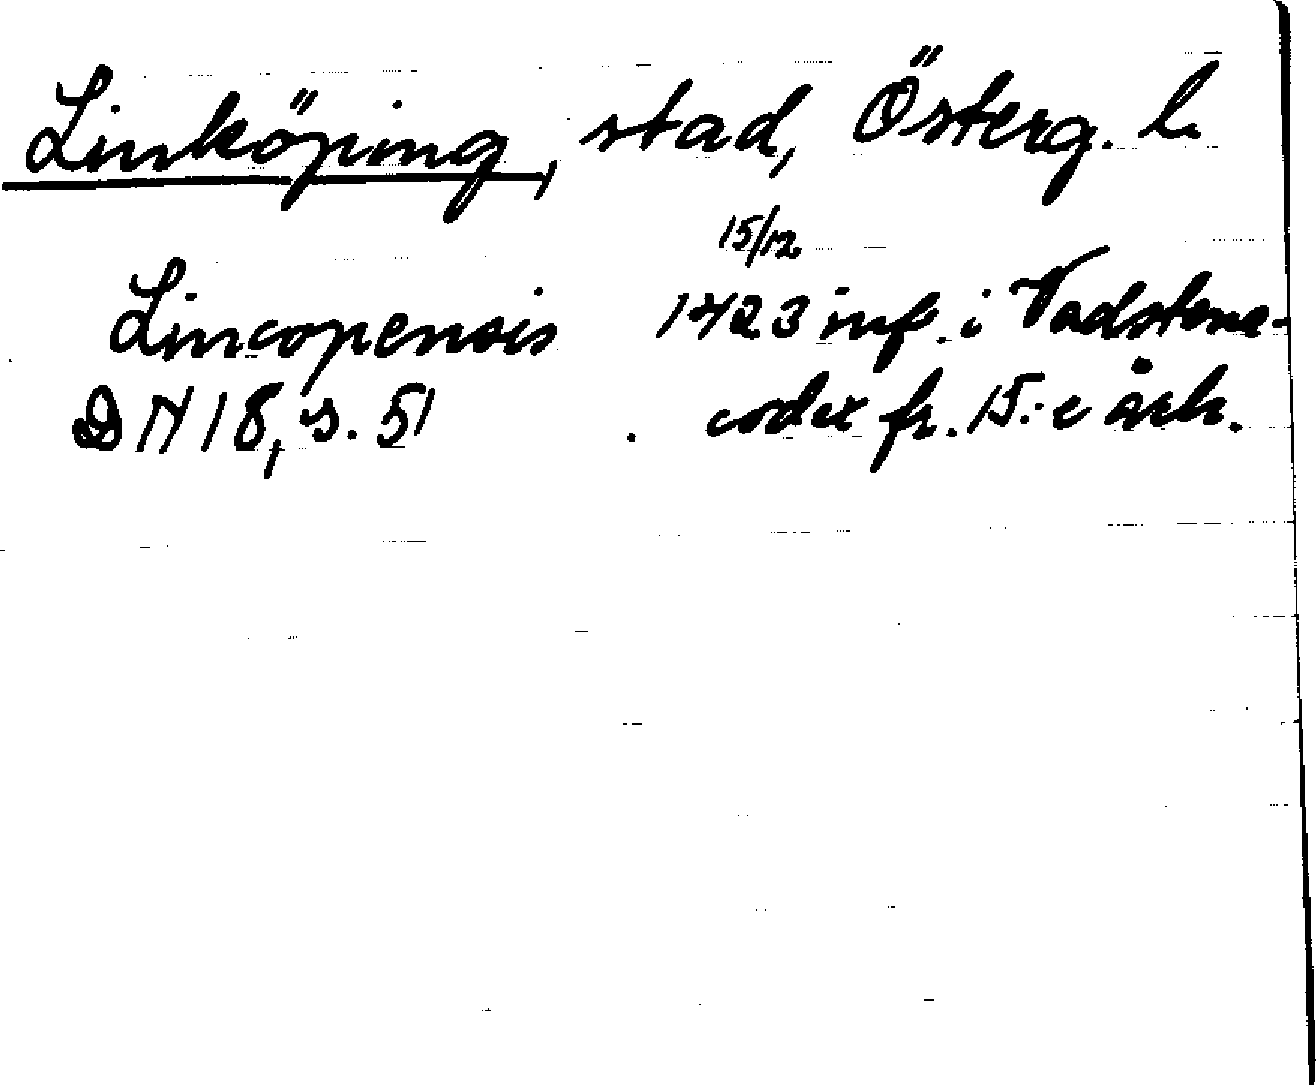 Linköping, stad, Österg. l.
15/12
Lincopensis 1423 inf. i Vadstena-
DN 18, s. 51 codex fr. 15:e årh.